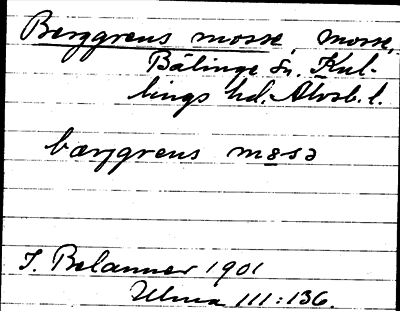 Berggrens mosse, mosse,
Bälinge sn. Kul-
lings hd. Älvsb. l.
bærggrens mosə
I. Belanner 1901
Ulma 111:136.